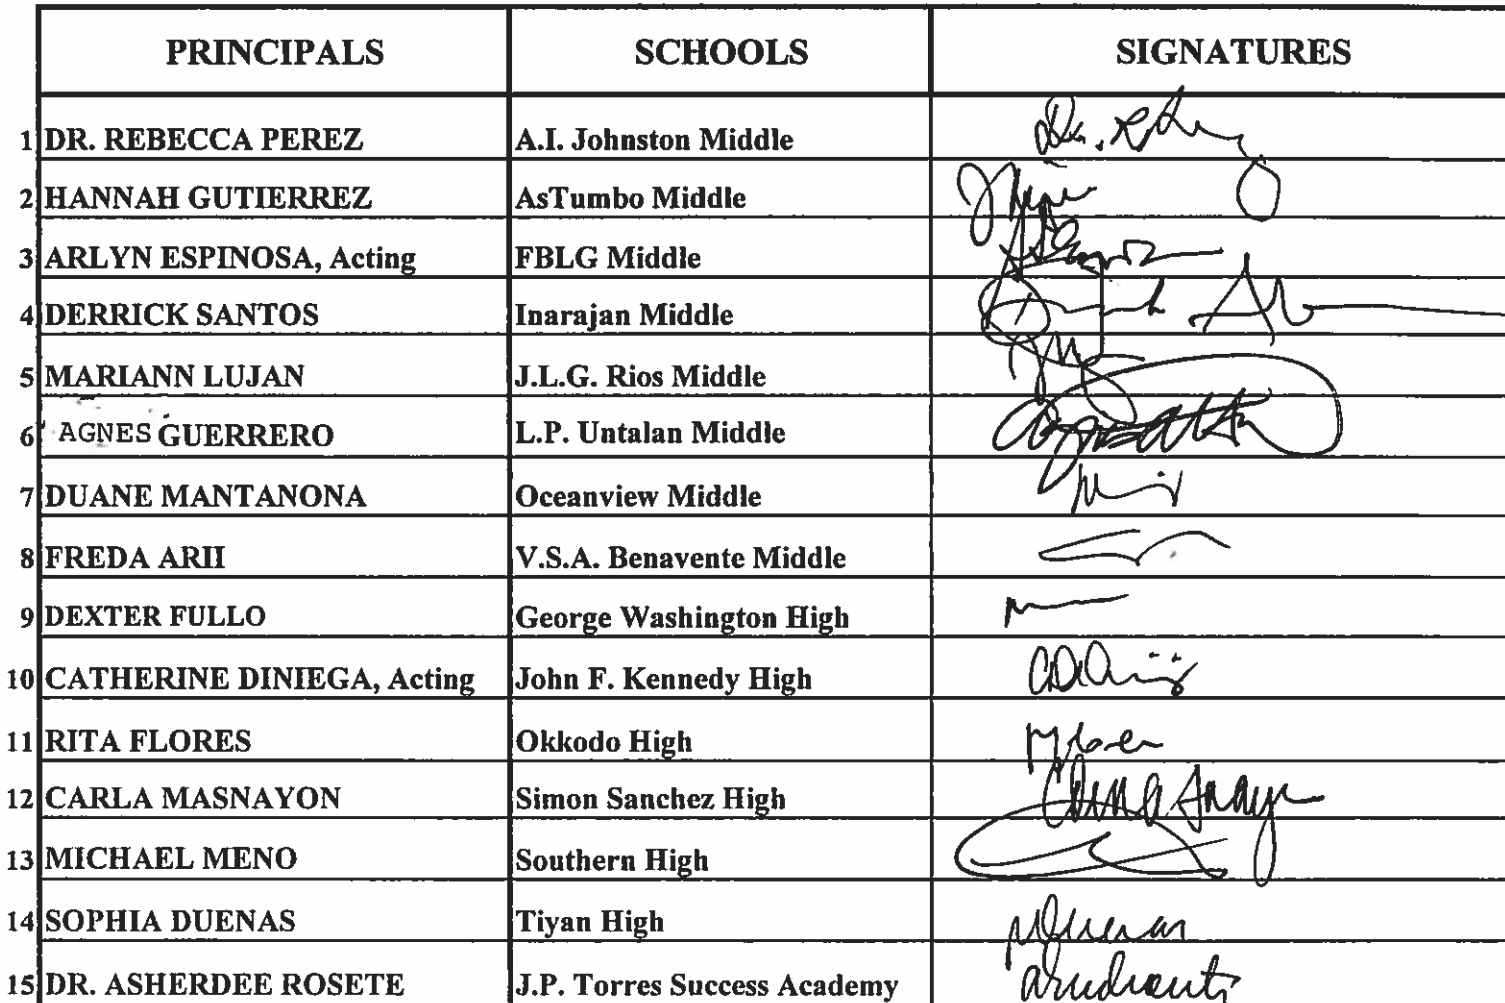 PRINCIPALS SCHOOLS SIGNATURES
1 DR. REBECCA PEREZ A.I. Johnston Middle Dr.
2 HANNAH GUTIERREZ AsTumbo Middle
3 ARLYN ESPINOSA, Acting FBLG Middle
4 DERRICK SANTOS Inarajan Middle
5 MARIANN LUJAN J.L.G. Rios Middle
6 AGNES GUERRERO L.P. Untalan Middle
7 DUANE MANTANONA Oceanview Middle
8 FREDA ARII V.S.A. Benavente Middle
9 DEXTER FULLO George Washington High
10 CATHERINE DINIEGA, Acting John F. Kennedy High
11 RITA FLORES Okkodo High
12 CARLA MASNAYON Simon Sanchez High
13 MICHAEL MENO Southern High
14 SOPHIA DUENAS Tiyan High
15 DR. ASHERDEE ROSETE J.P. Torres Success Academy